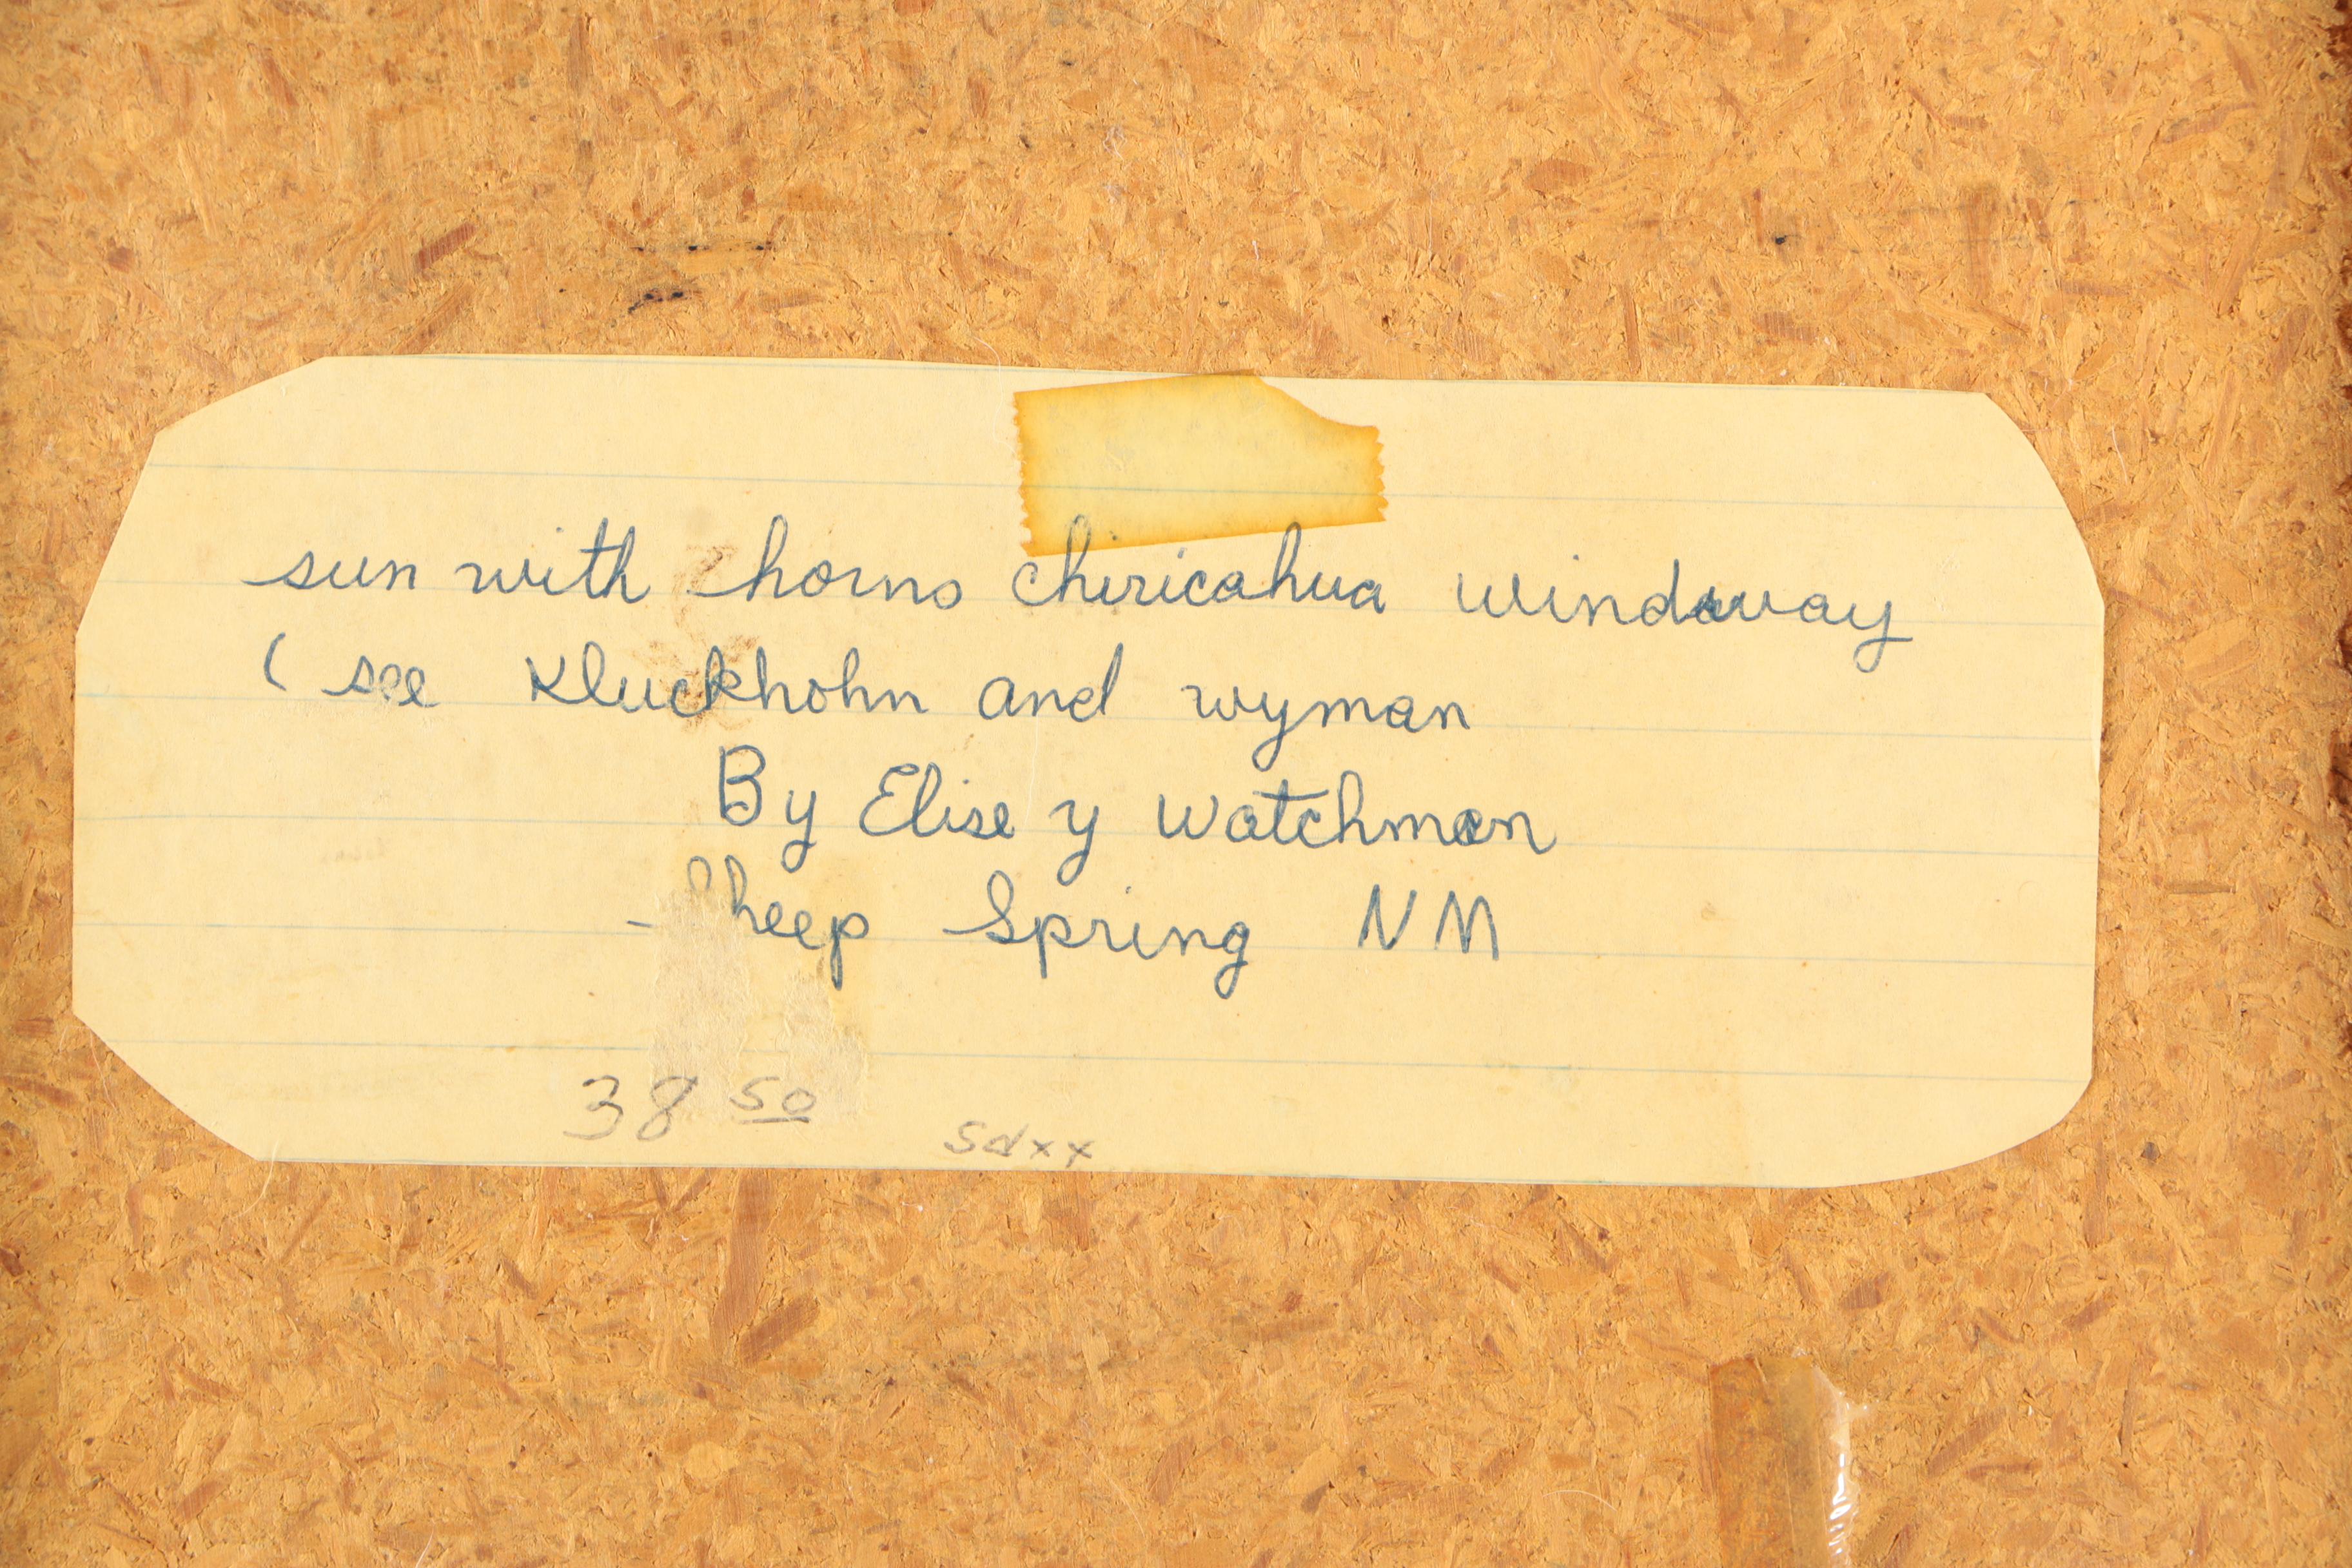 sun with horns chiricahua windway
( see Kluckhohn and wyman
By Elise y Watchman
Sheep Spring NM
38 50
Sdxx